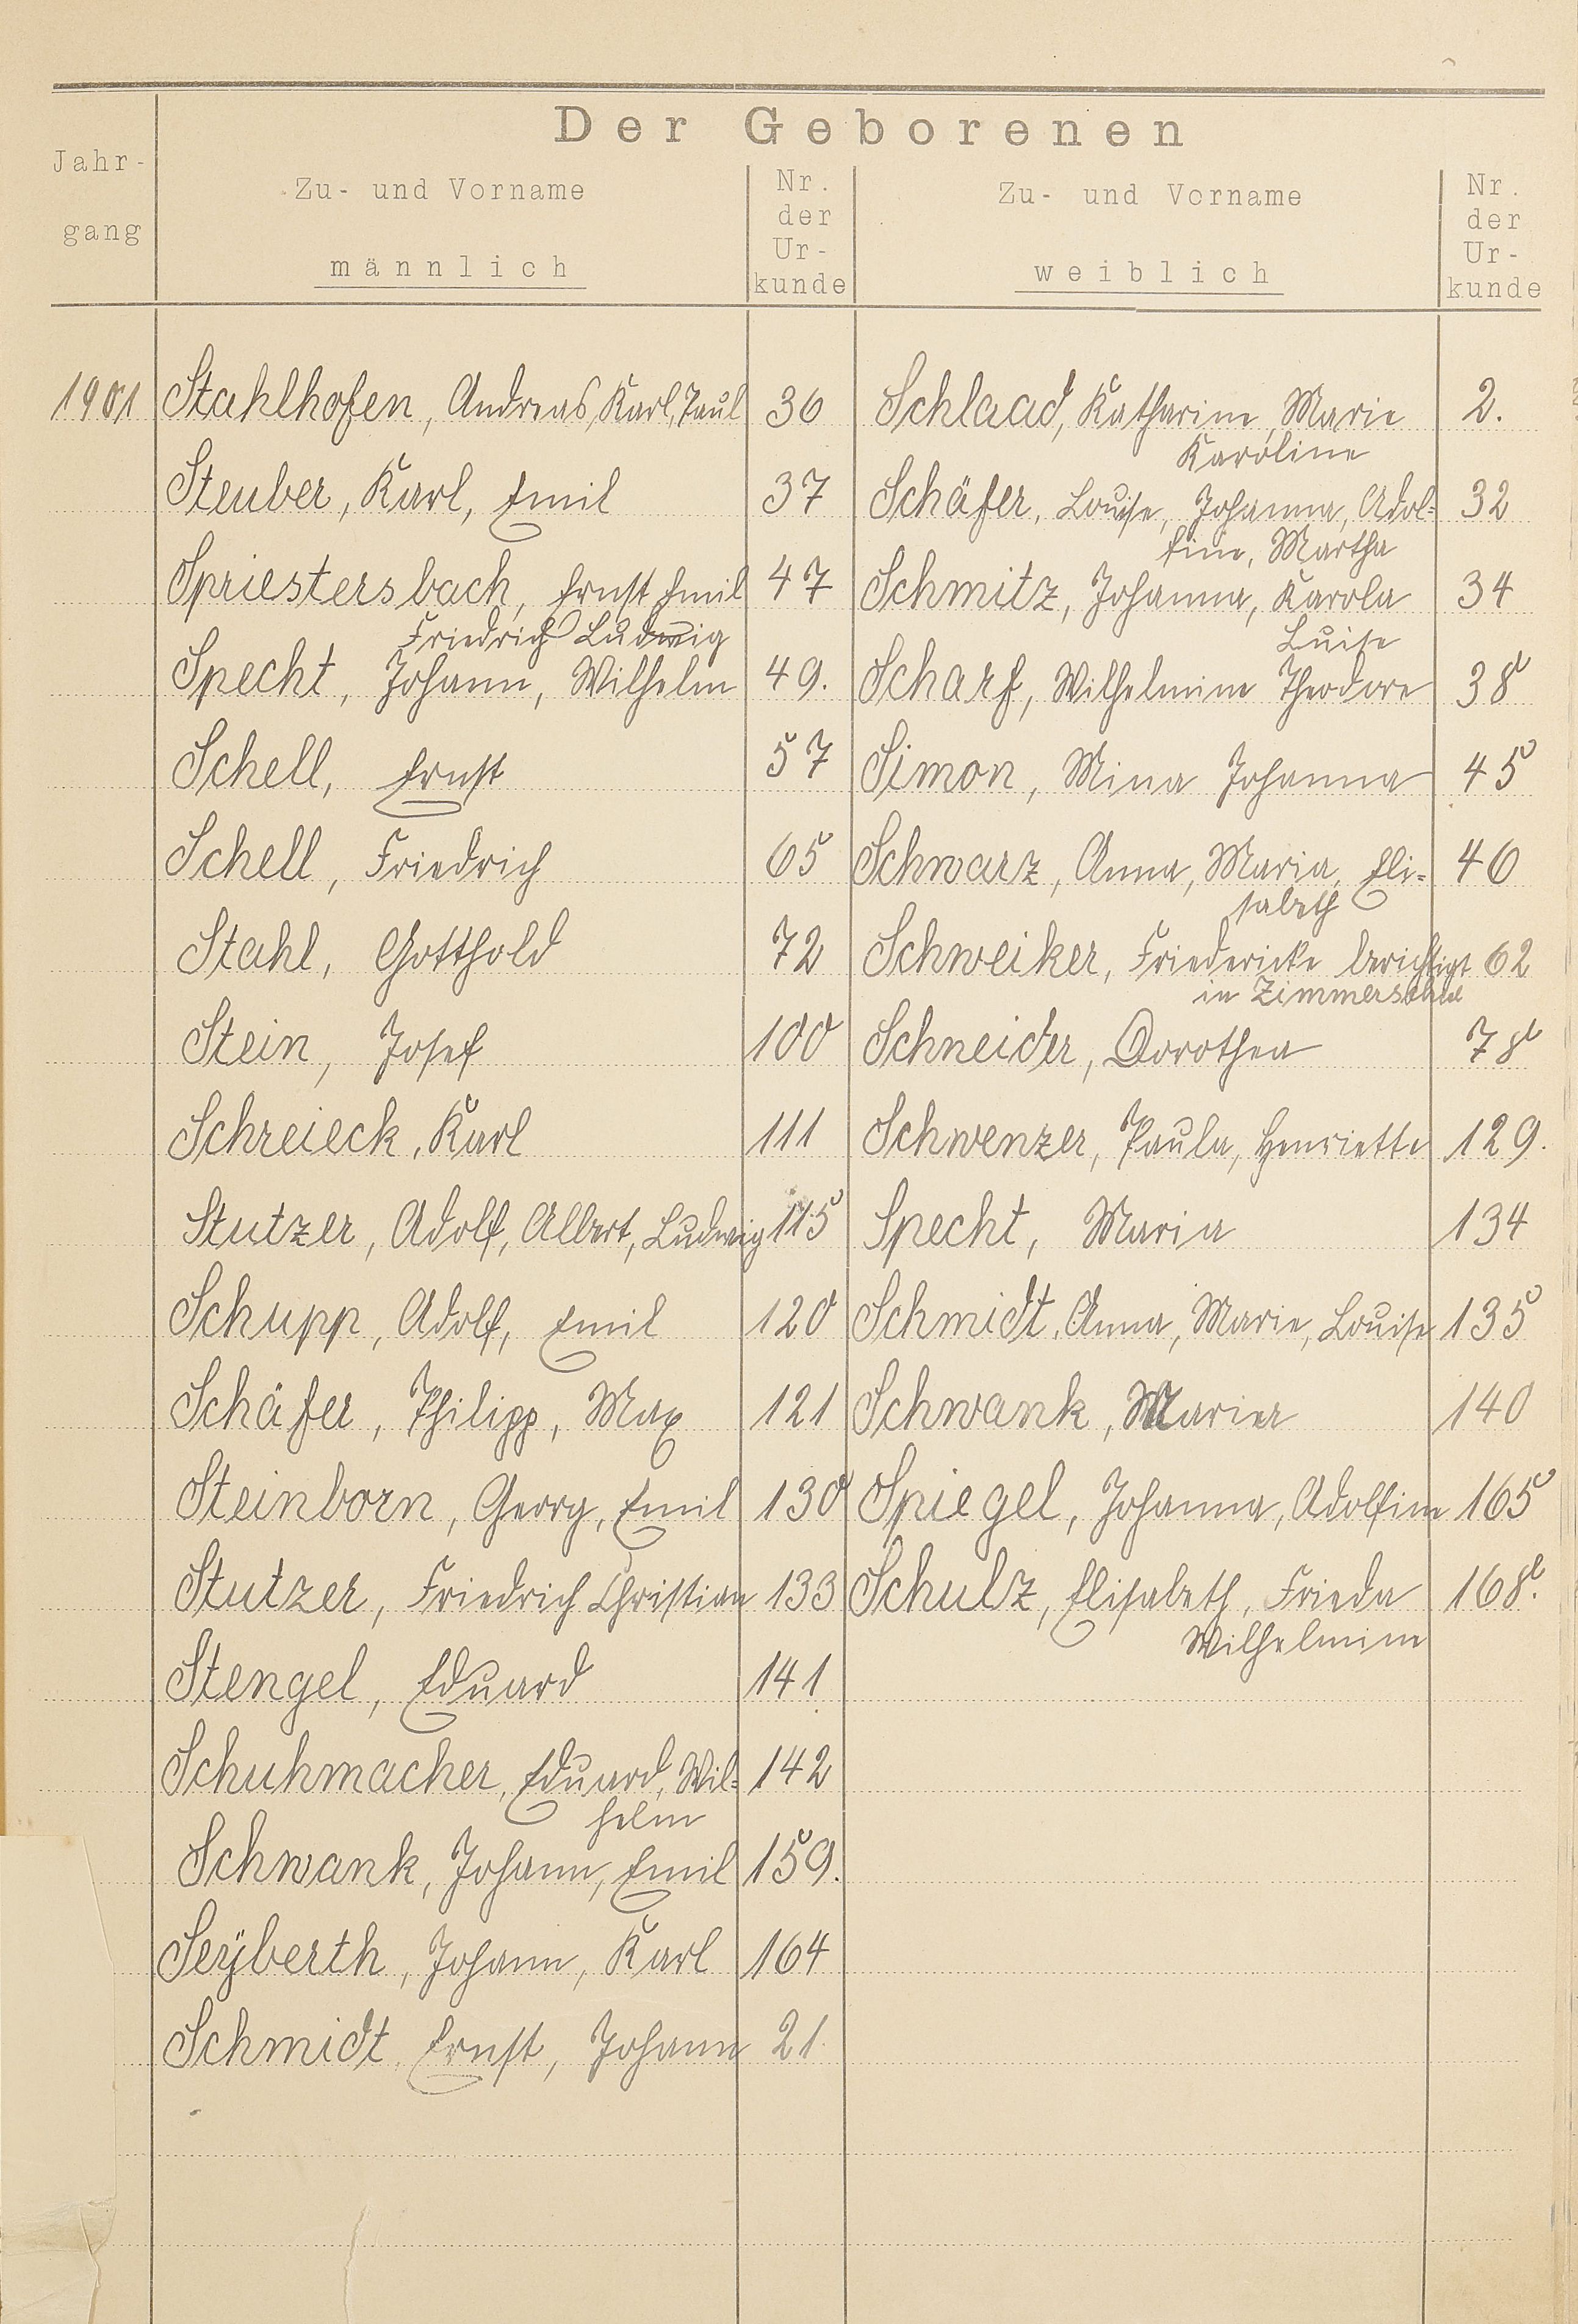 Der Geborenen
Jahr-
gang
Zu- und Vorname
männlich
Nr.
der
Ur-
kunde
Zu- und Vorname
weiblich
Nr.
der
Ur-
kunde
1901 Stahlhofen, Andreas, Karl, Paul 36 Schlaad, Katharine, Marie 2.
Karoline
Steuber, Karl, Emil 37 Schäfer, Louise, Johanna, Adol- 32
fine, Martha
Spriestersbach, Ernst Emil 47 Schmitz, Johanna, Karola 34
Friedrich Ludwig Luise
Specht, Johann, Wilhelm 49. Scharf, Wilhelmine Theodore 38
Schell, Ernst 57 Simon, Mina Johanna 45
Schell, Friedrich 65 Schwarz, Anna, Maria, Eli- 46
sabeth
Stahl, Gotthold 72 Schweiker, Friedericke berichtigt 62
in Zimmerschied
Stein, Josef 100 Schneider, Dorothea 78
Schreieck, Karl 111 Schwenzer, Paula, Henriette 129.
Stutzer, Adolf, Albert, Ludwig 115 Specht, Maria 134
Schupp, Adolf, Emil 120 Schmidt, Anna, Marie, Louise 135
Schäfer, Philipp, Max 121 Schwank, Maria 140
Steinborn, Georg, Emil 130 Spiegel, Johanna, Adolfine 165
Stutzer, Friedrich Christian 133 Schulz, Elisabeth, Frieda 168.
Wilhelmine
Stengel, Eduard 141
Schuhmacher, Eduard, Wil- 142
helm
Schwank, Johann, Emil 159.
Seÿberth, Johann, Karl 164
Schmidt, Ernst, Johann 21